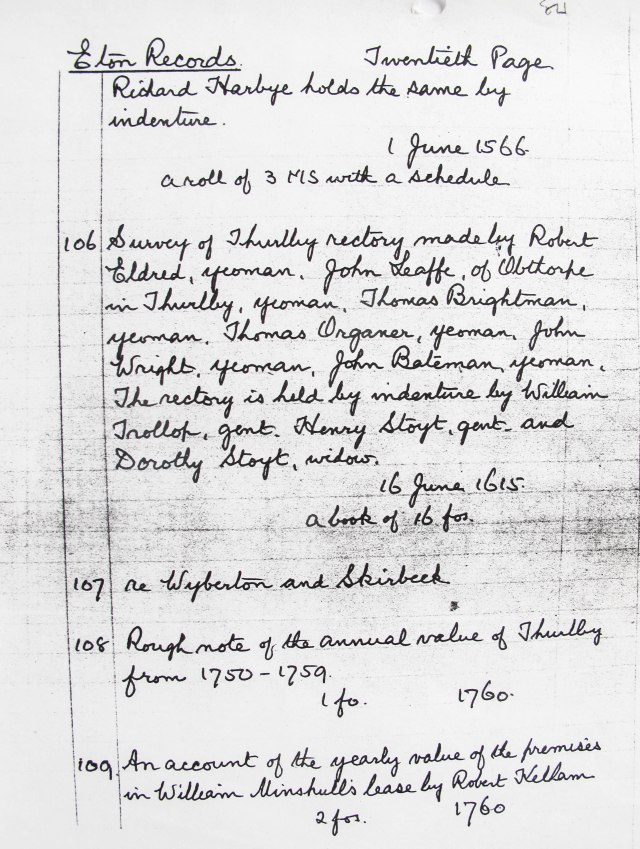 84
Eton Records. Twentieth Page.
Richard Harbye holds the same by
indenture.
1 June 1566.
a roll of 3 MS with a schedule
106 Survey of Thurlby rectory made by Robert
Eldred, yeoman. John Leaffe, of Obthorpe
in Thurlby, yeoman. Thomas Brightman,
yeoman. Thomas Organer, yeoman. John
Wright, yeoman. John Bateman, yeoman.
The rectory is held by indenture by William
Trollop, gent. Henry Stoyt, gent. and
Dorothy Stoyt, widow.
16 June 1615.
a book of 16 fos.
107 re Wyberton and Skirbeck
108 Rough note of the annual value of Thurlby
from 1750 - 1759.
1 fo. 1760.
109. An account of the yearly value of the premises
in William Minshull's lease by Robert Kellam
2 fos. 1760